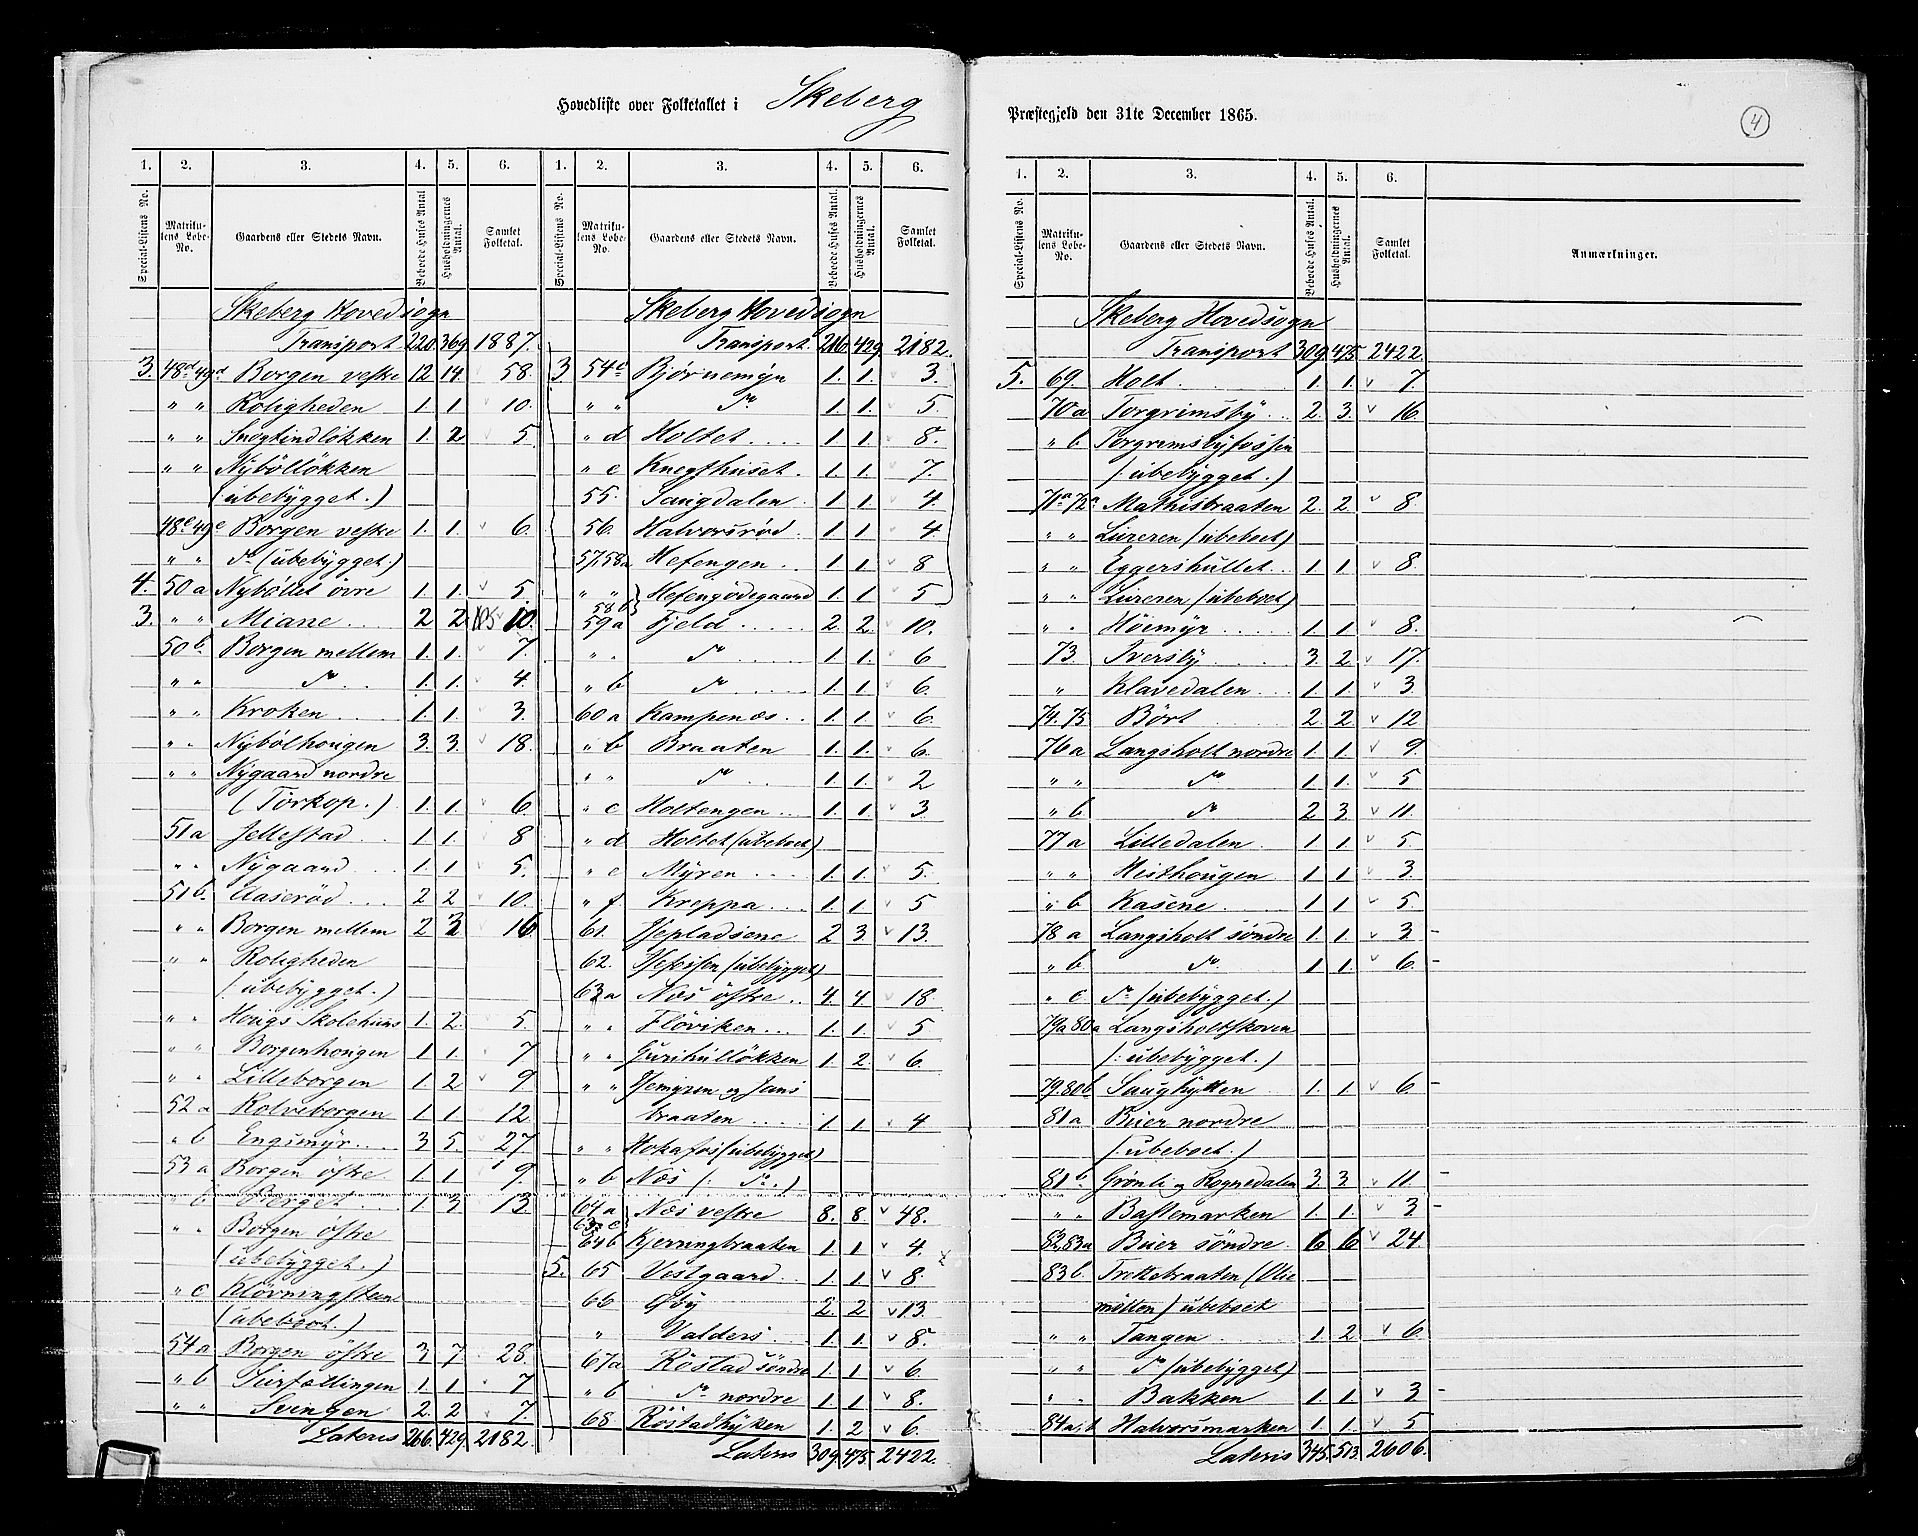 Hovedliste over Folketallet i Skeberg
1. 2. 3. 4. 5. 6.
Special-Listens No. Matrikulens Løbe-No. Gaardens eller Stedets Navn. Beboede Huses Antal Husholdningernes Antal. Samlet Folketal.
Skeberg Hovedsogn
Transport 220. 369 1887.
3. 48d 49d Borgen vestre 12 14 58.
" " Roligheden 1. 1 10.
" " løkken 1. 2 5.
" " Nybölløkken
(ubebygget.)
48e 49e Borgen vestre 1. 1. 6.
" " Do (ubebygget.)
4. 50a Nyböllet övre 1. 1. 5.
3. " " Miane 2 2 10.
50b Borgen mellem 1. 1. 7.
" " Do 1. 1. 4.
" " Kroken 1. 1. 3.
" " Nybölhougen 3. 3. 18.
" " Nygaard nordre
(Torkop.) 1. 1. 6.
51a Jellestad 1 1 8
" " Nygaard 1. 1. 5.
51b. Aaserød 2 2 10.
" " Borgen mellem 2 3 16
" " Roligheden
(ubebygget.)
" " Hougs Skolehuus 1. 2. 5
" " Borgenhougen 1 1. 7
" " Lilleborgen 1. 2 9
52a Rolveborgen 1 1 12.
" b Engsmyr 3 5. 27
53a Borgen östre 1. 1 9.
" b Berget 1. 3 13.
" " Borgen östre
(ubebygget.)
" c Kløvningsteen
(ubeboet.)
54a Borgen östre 3 7. 28.
" b 1 1 7
" " Svingen 2. 2 7.
Lateris 266. 429. 2182.
1. 2. 3. 4. 5. 6.
Special-Listens No. Matrikulens Løbe-No. Gaardens eller Stedets Navn. Beboede Huses Antal Husholdningernes Antal. Samlet Folketal.
Skeberg Hovedsogn
Transport. 266. 429. 2182.
3. 54c Bjørnemyr 1. 1. 3.
" " Do 1. 1. 5.
" d Holtet 1 1. 8.
" e Knegthuset 1. 1. 7.
55. Saugdalen 1. 1. 4.
56. Halvorsrød 1. 1. 4
57, 58a Hefengen 1. 1 8
" " 58b Hefengødegaard 1. 1 5
59a Fjeld 2. 2. 10.
" " Do 1 1 6
" b Do 1 1 6.
60a Kampenæs 1. 1 6.
" b Braaten 1 1. 6.
" " Do 1. 1. 2
" c Holtengen 1. 1. 3
" d Holtet (ubeboet)
" e Myren 1. 1. 5.
" f. Kreppa 1. 1 5
61. Isepladsene 2 3 13.
62. Isefossen (ubebygget)
63a Næs östre 4. 4 18.
" " Fløviken 1. 1 5
" " Gurihulløkken 1 2. 6.
" " Isemyren og Jans
braaten 1 1 4
" " Hokafos (ubebygget)
" b Næs (: Do.)
64a Næs vestre 8. 8. 48.
64b Kjerringbraaten 1 1 4.
5. 65 Vestgaard 1. 1 8.
66 Øby 2. 2 13.
" Valders 1. 1 8.
67a Röstad söndre 1 1 6
" b Do nordre 1 1. 8.
68. Röstadhytten 1 2 6.
Lateris 309. 475. 2422.
Præstegjeld den 31te December 1865.
4
1. 2. 3. 4. 5. 6.
Special-Listens No. Matrikulens Løbe-No. Gaardens eller Stedets Navn. Beboede Huses Antal. Husholdningernes Antal. Samlet Folketal. Anmærkninger.
Skeberg Hovedsogn
Transport 309. 475 2422.
5. 69. Holt 1. 1. 7
70a Torgrimsby 2. 3. 16
" b Torgrimsbyfossen
(: ubebygget.)
71a 72a Mathisbraaten 2. 2. 8.
" " Lureren (ubeboet)
" " Eggershullet 1. 1 8.
" " Lureren (ubeboet)
" " Höiemyr 1. 1. 8.
73. Iversby 3. 2. 17.
" Klavedalen 1. 1. 3.
74. 75 Børt 2. 2 12
76a Langsholt nordre 1. 1 9.
" " Do 1 1. 5
" b Do 2 3. 11.
77a Lilledalen 1. 1 5
" " Hesthougen 1. 1 3.
" b Kasene 1. 1 5
78a Langsholt söndre 1. 1. 3 -
" b Do 1 1. 6. -
" c Do (ubebygget.)
79a 80a Langsholtskoven
(: ubebygget.)
79. 80b Saughytten 1. 1 6 -
81a Buer nordre
(: ubeboet.)
81b Grönli og Rognedalen 3. 3 11 -
" " Bastemarken 1. 1. 3 -
82, 83a Buer söndre 6 6 24.
83b. Trottebraaten (Olie
möllen) ubeboet
" " Tangen 1. 2 6.
" " Do (ubebygget)
" " Bakken 1. 1. 3 -
84a, b Halvorsmarken 1. 1. 5
Lateris 345. 513. 2606.